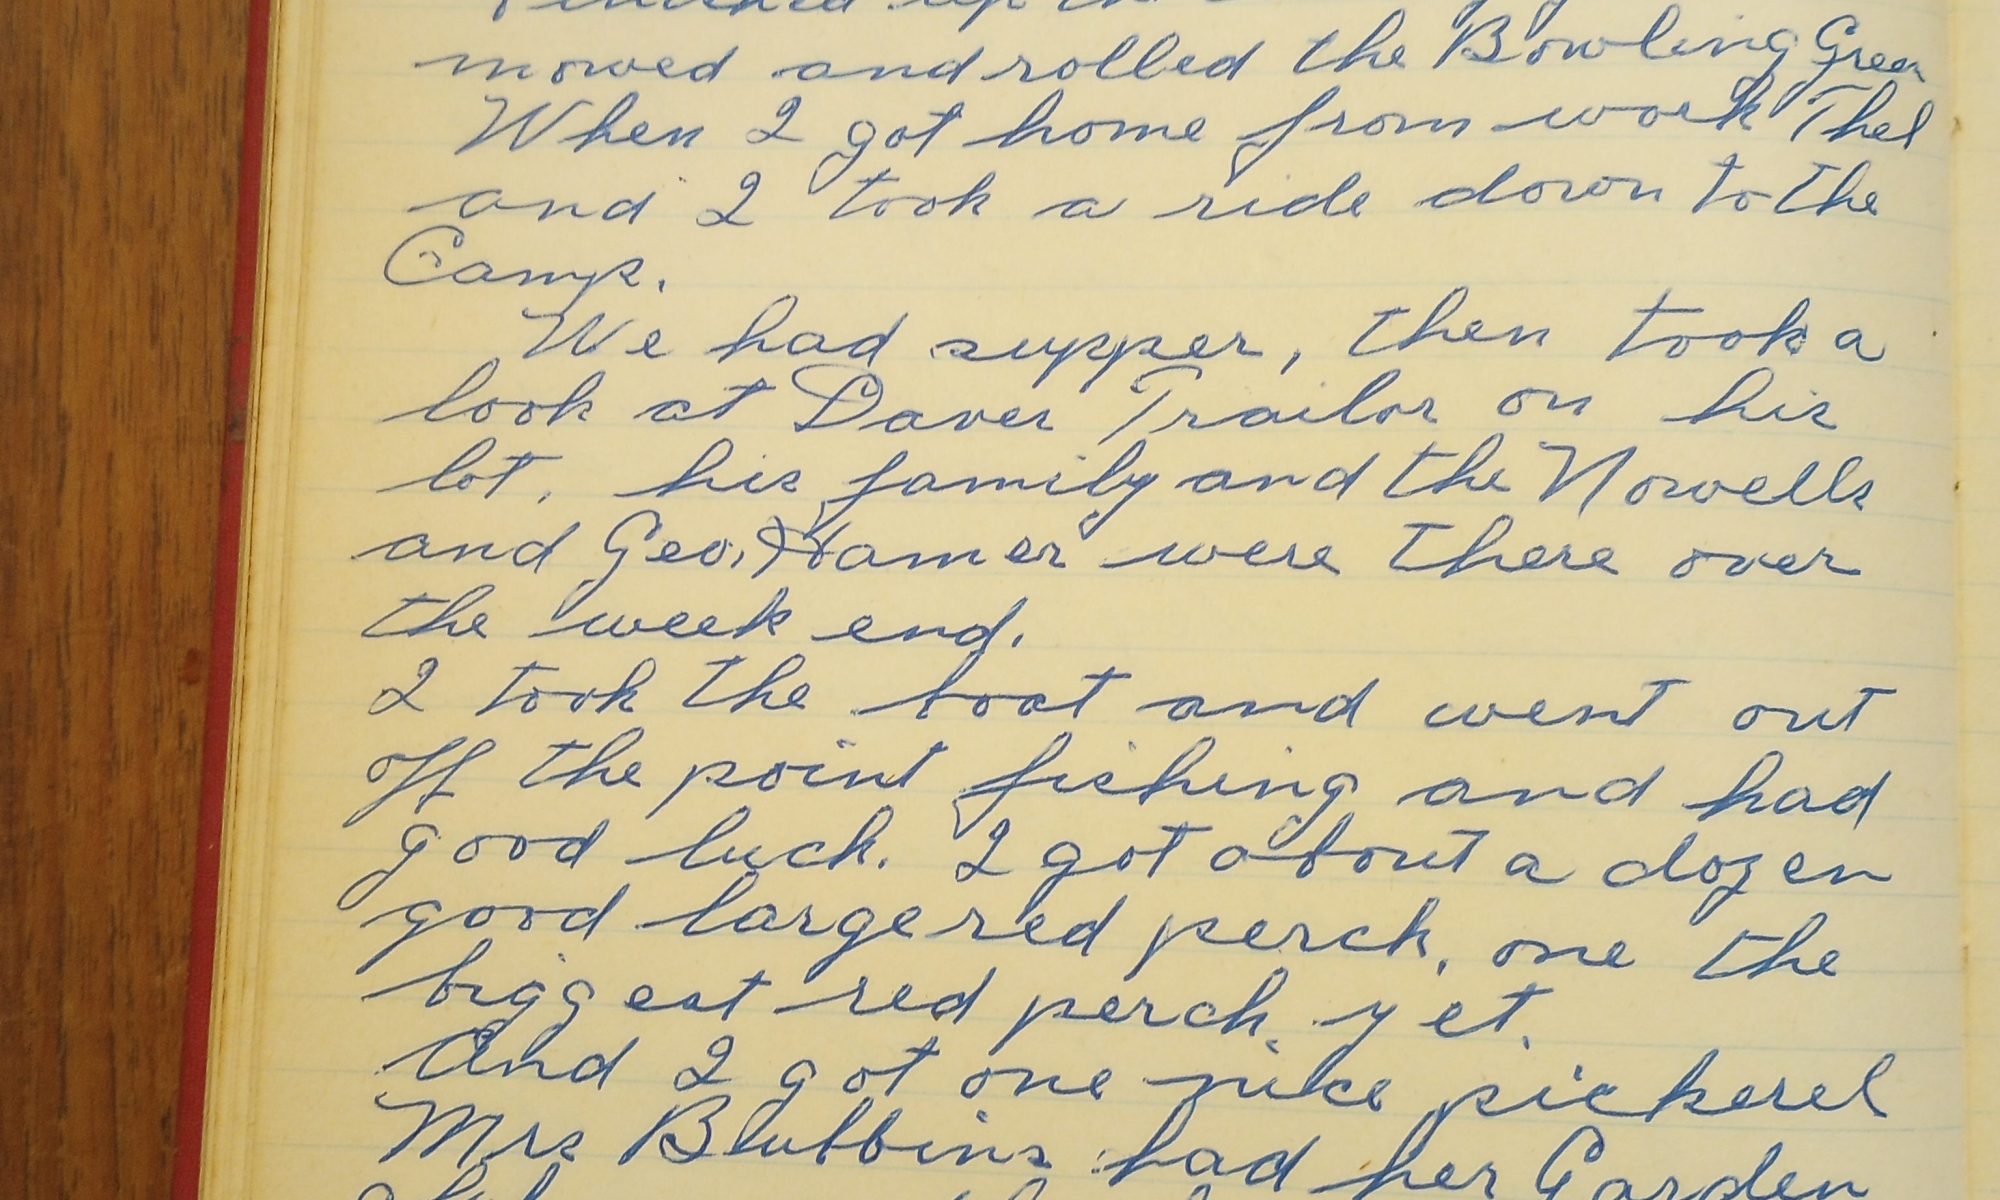 mowed and rolled the Bowling Green
When I got home from work Thel
and I took a ride down to the
Camp.
We had supper, then took a
look at Daves Trailor on his
lot, his family and the Nowells
and Geo. Hamer were there over
the week end.
I took the boat and went out
off the point fishing and had
good luck. I got about a dozen
good large red perch, one the
biggest red perch yet.
And I got one nice pickerel
Mrs Blubbins had her Garden